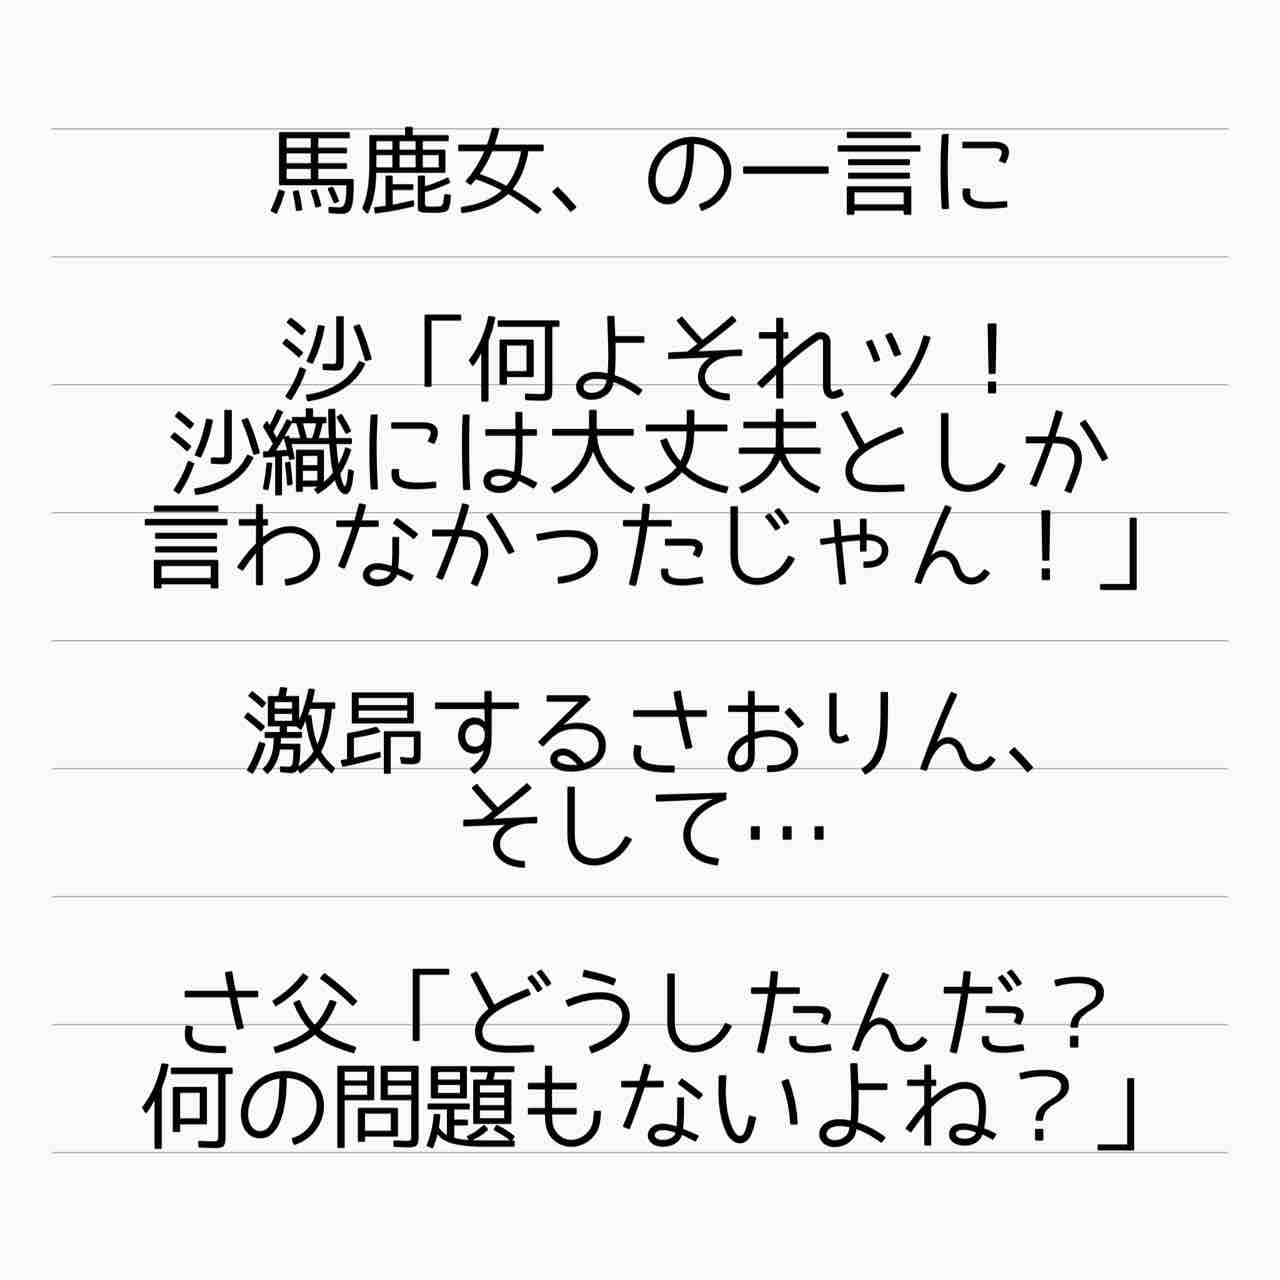 馬鹿女、の一言に
沙「何よそれッ！
沙織には大丈夫としか
言わなかったじゃん！」
激昂するさおりん、
そして…
さ父「どうしたんだ？
何の問題もないよね？」